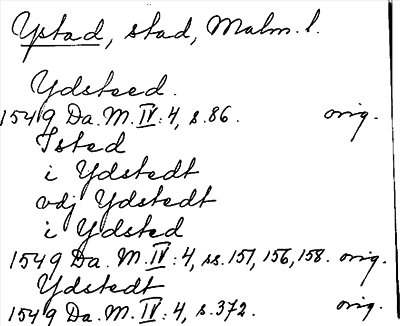 Ystad, stad, Malm. l.
Ydsteed.
1549 Da. M. IV: 4, s. 86. orig.
Isted
i Ydstedt
vdj Ydstedt
i Ydsted
1549 Da. M. IV: 4, ss. 151, 156, 158. orig.
Ydstedt
1549 Da. M. IV: 4, s. 372. orig.